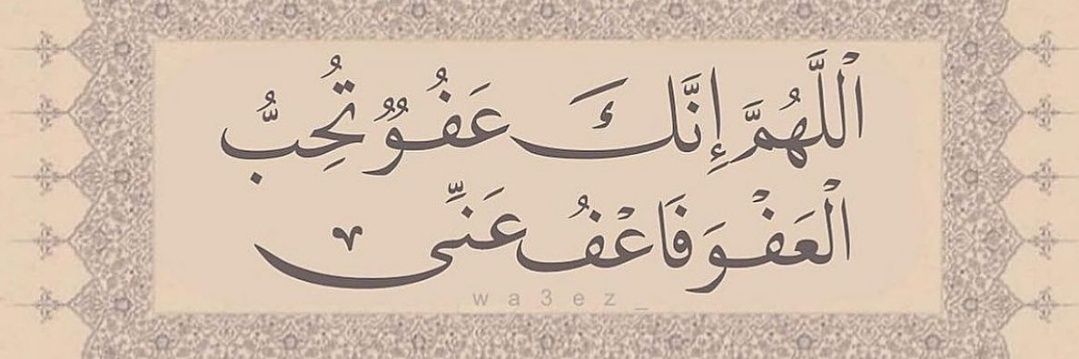 اللَّهُمَّ إِنَّكَ عَفُوٌّ تُحِبُّ
الْعَفْوَ فَاعْفُ عَنِّى
wa3ez_